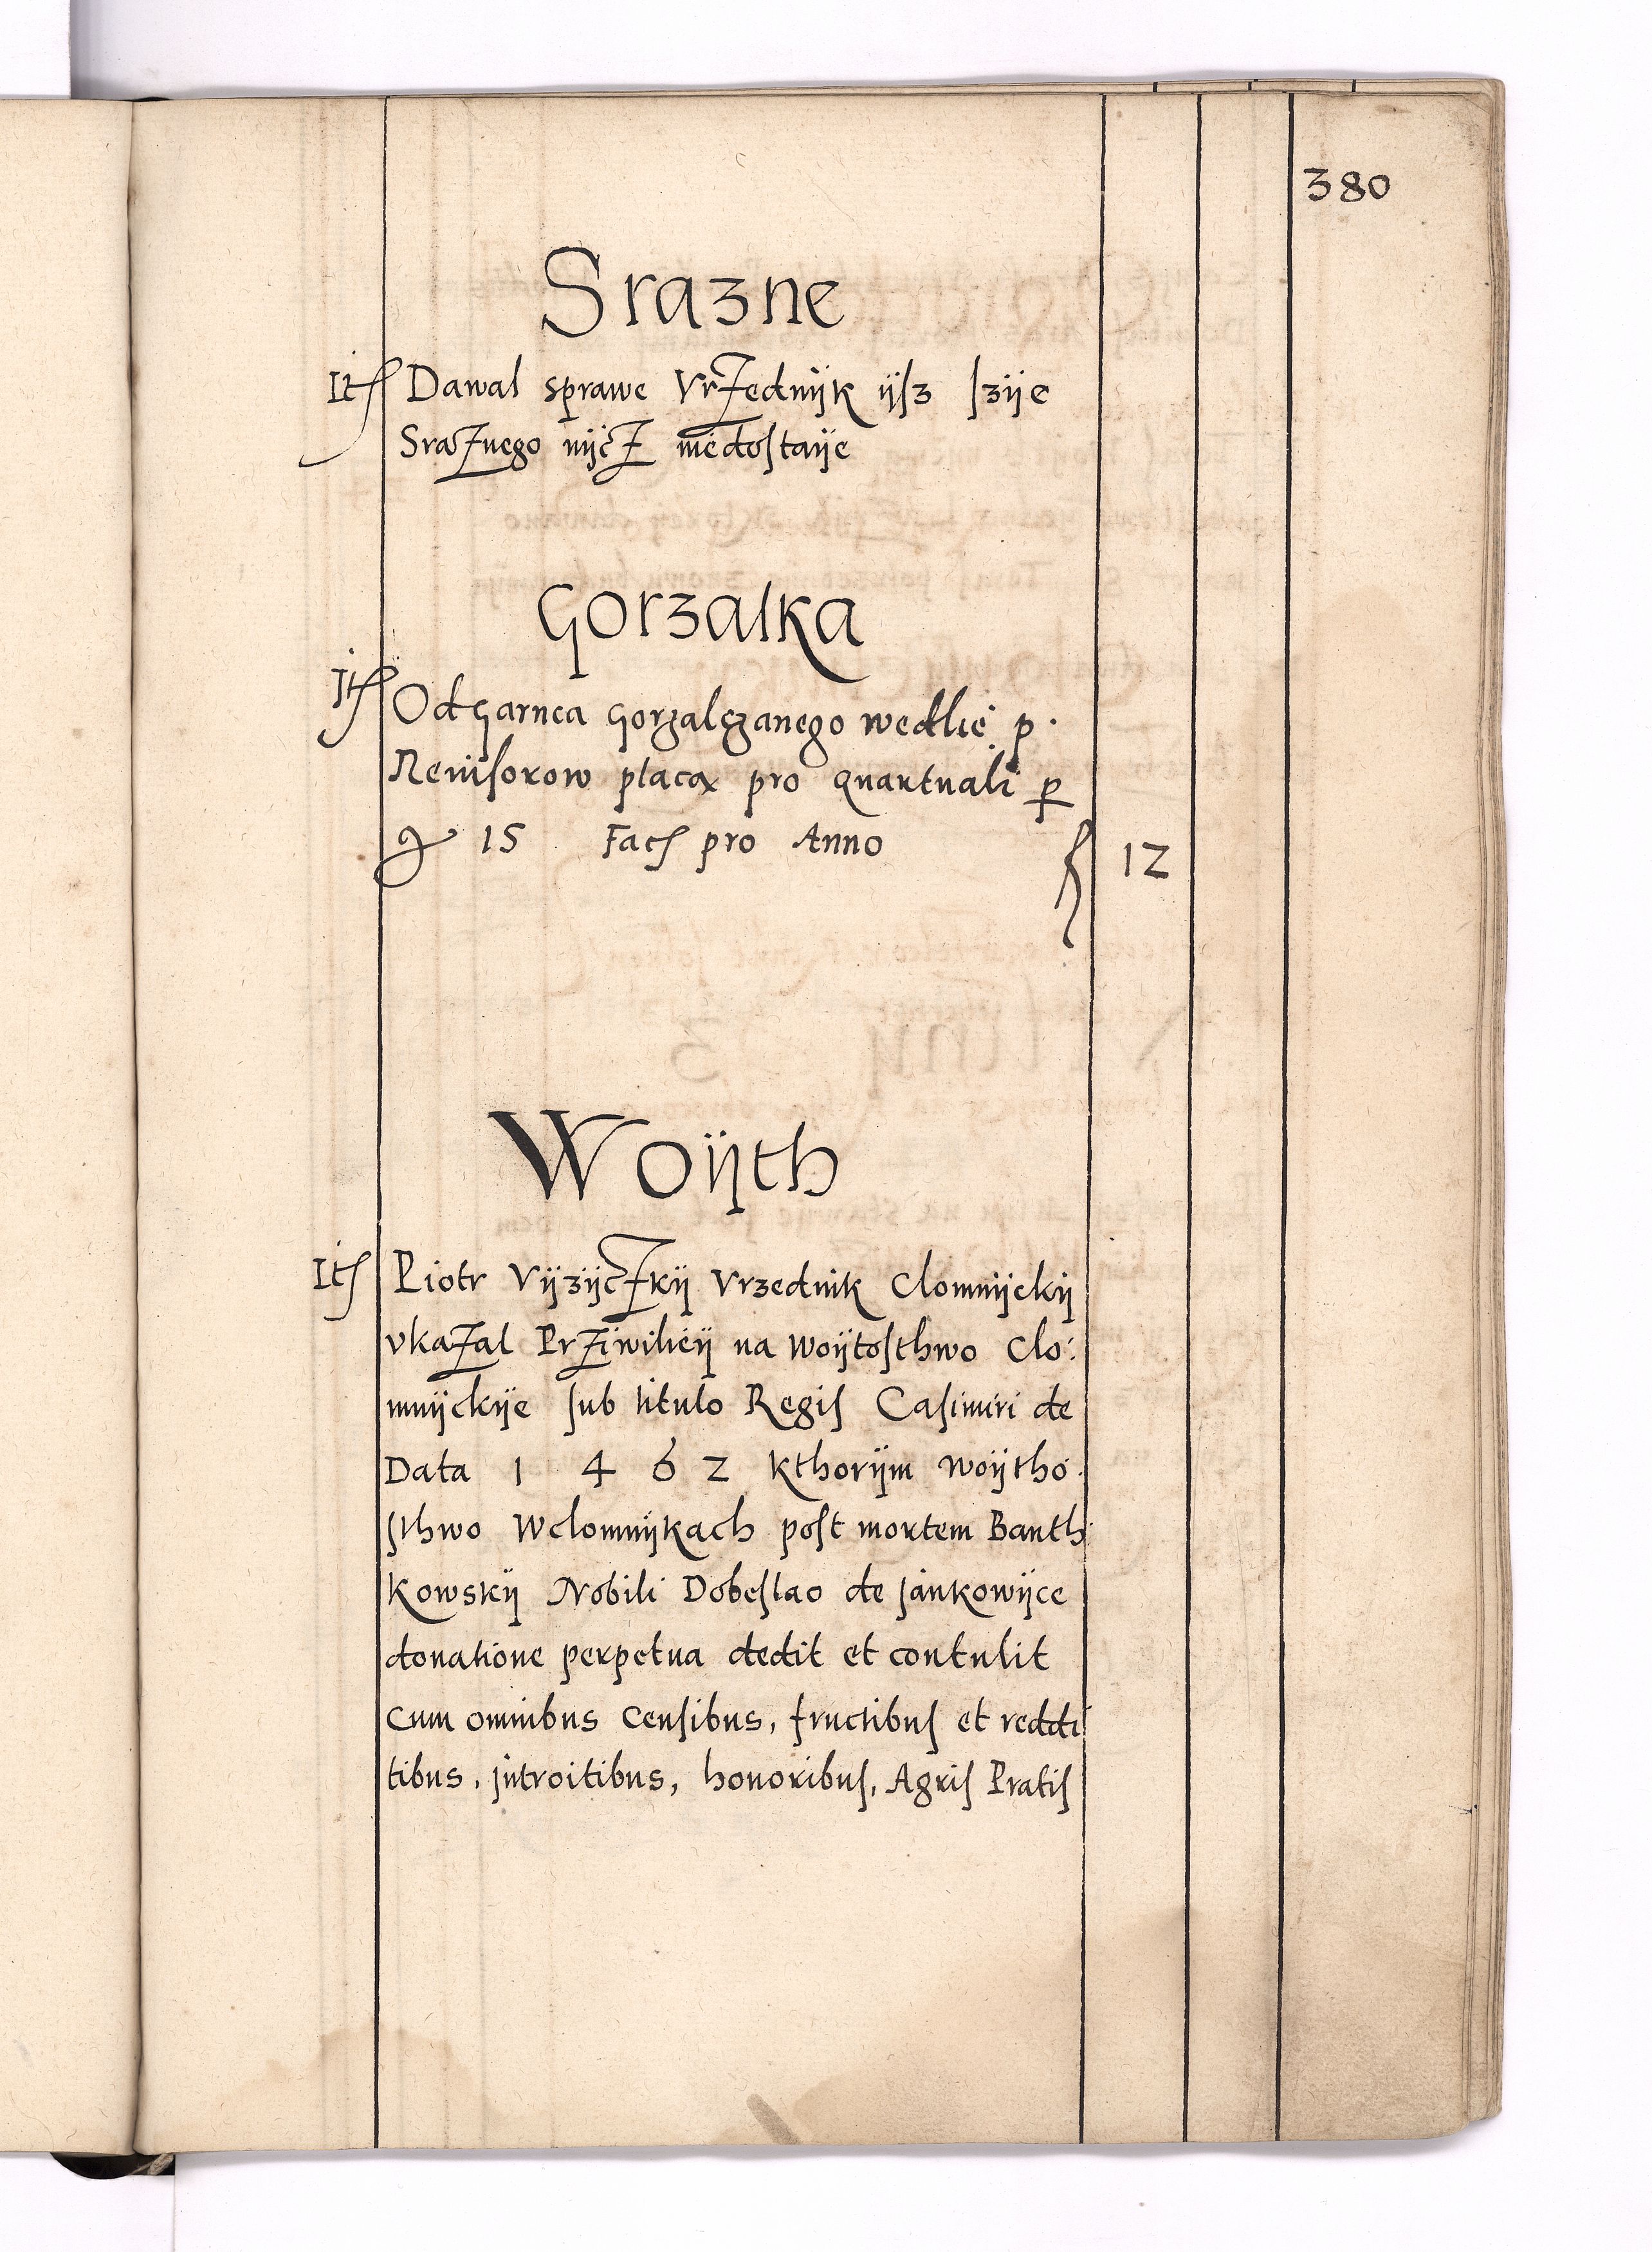 380
Srazne
Itſ Dawal sprawe Vrzednÿk ÿſz ſzÿe
Sraznego nÿcz niedoſtaÿe
Gorzalka
Itſ Od Garnca gorzalczanego wedlie p.
Reuiſorow placa pro quartuali per
15 Facſ pro Anno 12
Woÿth
Itſ Piotr Vÿzÿczkÿ Vrzednik Clomnÿckÿ
vkazal Prziwilieÿ na woÿtoſthwo Clo:
mnÿckÿe ſub titulo Regiſ Caſimiri de
Data 1 4 6 2 kthorÿm woÿtho:
ſthwo Wclomnÿkach poſt mortem Banth:
kowskÿ Nobili Dobeſlao de jankowÿce
donatione perpetua dedit et contulit
cum omnibus Cenſibus, fructibuſ et reddi
tibus, jntroitibus, honoribuſ, Agriſ Pratiſ